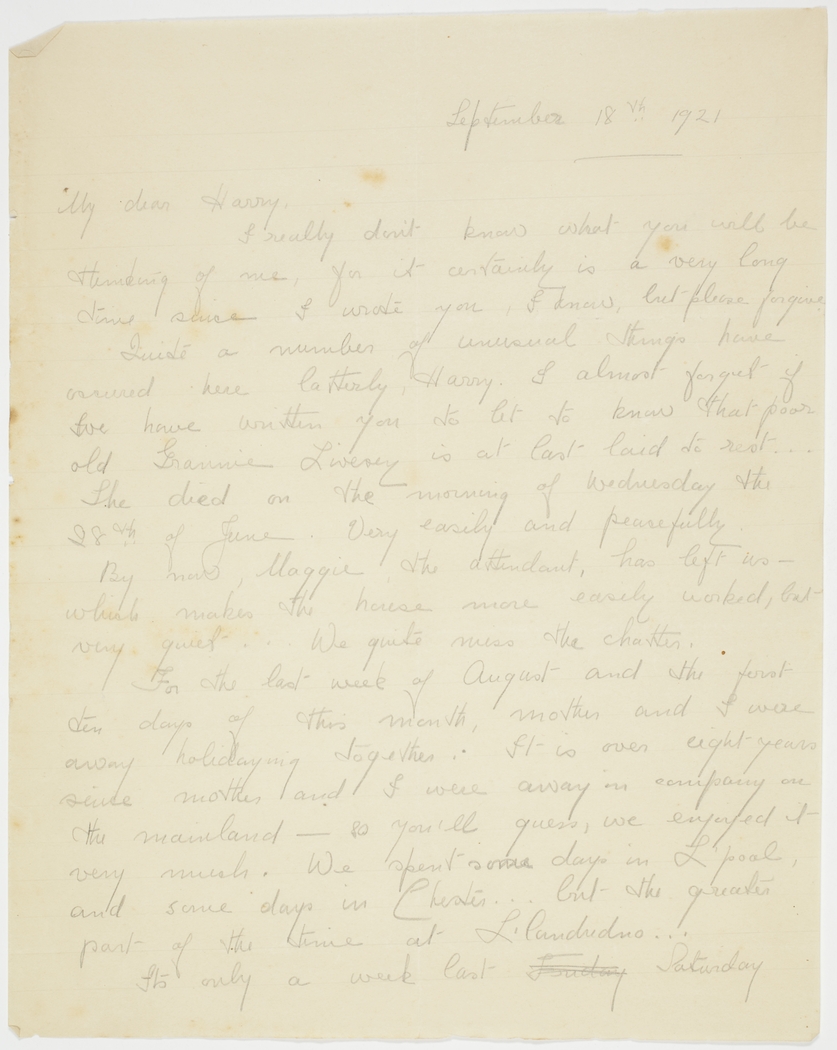 September 18th 1921
My dear Harry.
I really don't know what you will be
thinking of me, for it certainly is a very long
time since I wrote you, I know, but please forgive
Quite a number of unusual things have
occured here latterly, Harry. I almost forget if
I've have written you to let to know that poor
old Grannie Livesey is at last laid to rest...
She died on the morning of Wednesday the
28th of June. Very easily and peacefully.
By now, Maggie, the attendant, has left us –
which makes the house more easily worked, but
very quiet... We quite miss the chatter.
For the last week of August and the first
ten days of this month, mother and I were
away holidaying together. It is over eight years
since mother and I were away in company on
the mainland — so you'll guess, we enjoyed it
very much. We spent some days in L'pool,
and some days in Chester... but the greater
part of the time at Llandudno...
Its only a week last Friday Saturday